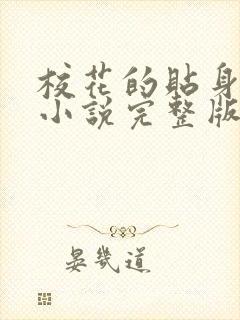 校花的貼身
小說完整版
晏幾道